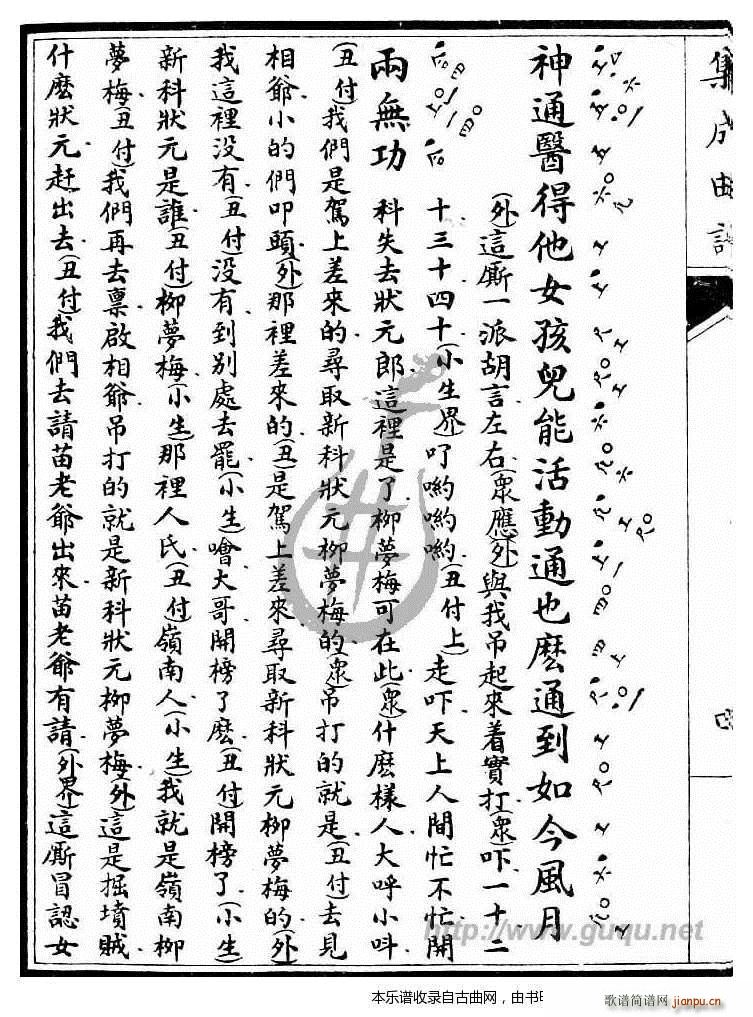 集成曲譜
四
神通醫得他女孩兒能活動通也麽通到如今風月
(外)這厮一派胡言左右(衆應)(外)與我吊起來着實打(衆)吓一十二
十三十四十(小生界)叮喲喲喲(丑付上)走吓天上人間忙不忙開
兩無功
科失去狀元郎這裡是了柳夢梅可在此(衆)什麽樣人大呼小呌
(丑付)我們是駕上差來的尋取新科狀元柳夢梅的(衆)吊打的就是(丑付)去見
相爺小的們叩頭(外)那裡差來的(丑)是駕上差來尋取新科狀元柳夢梅的(外)
我這裡没有(丑付)没有到別處去罷(小生)噲大哥開榜了麽(丑付)開榜了(小生)
新科狀元是誰(丑付)柳夢梅(小生)那裡人氏(丑付)嶺南人(小生)我就是嶺南柳
夢梅(丑付)我們再去禀啟相爺吊打的就是新科狀元柳夢梅(外)這是掘墳賊
什麽狀元赶出去(丑付)我們去請苗老爺出來苗老爺有請(外界)這厮冒認女
http://www.guqu.net
本乐谱收录自古曲网，由书
歌谱简谱网
jianpu.cn